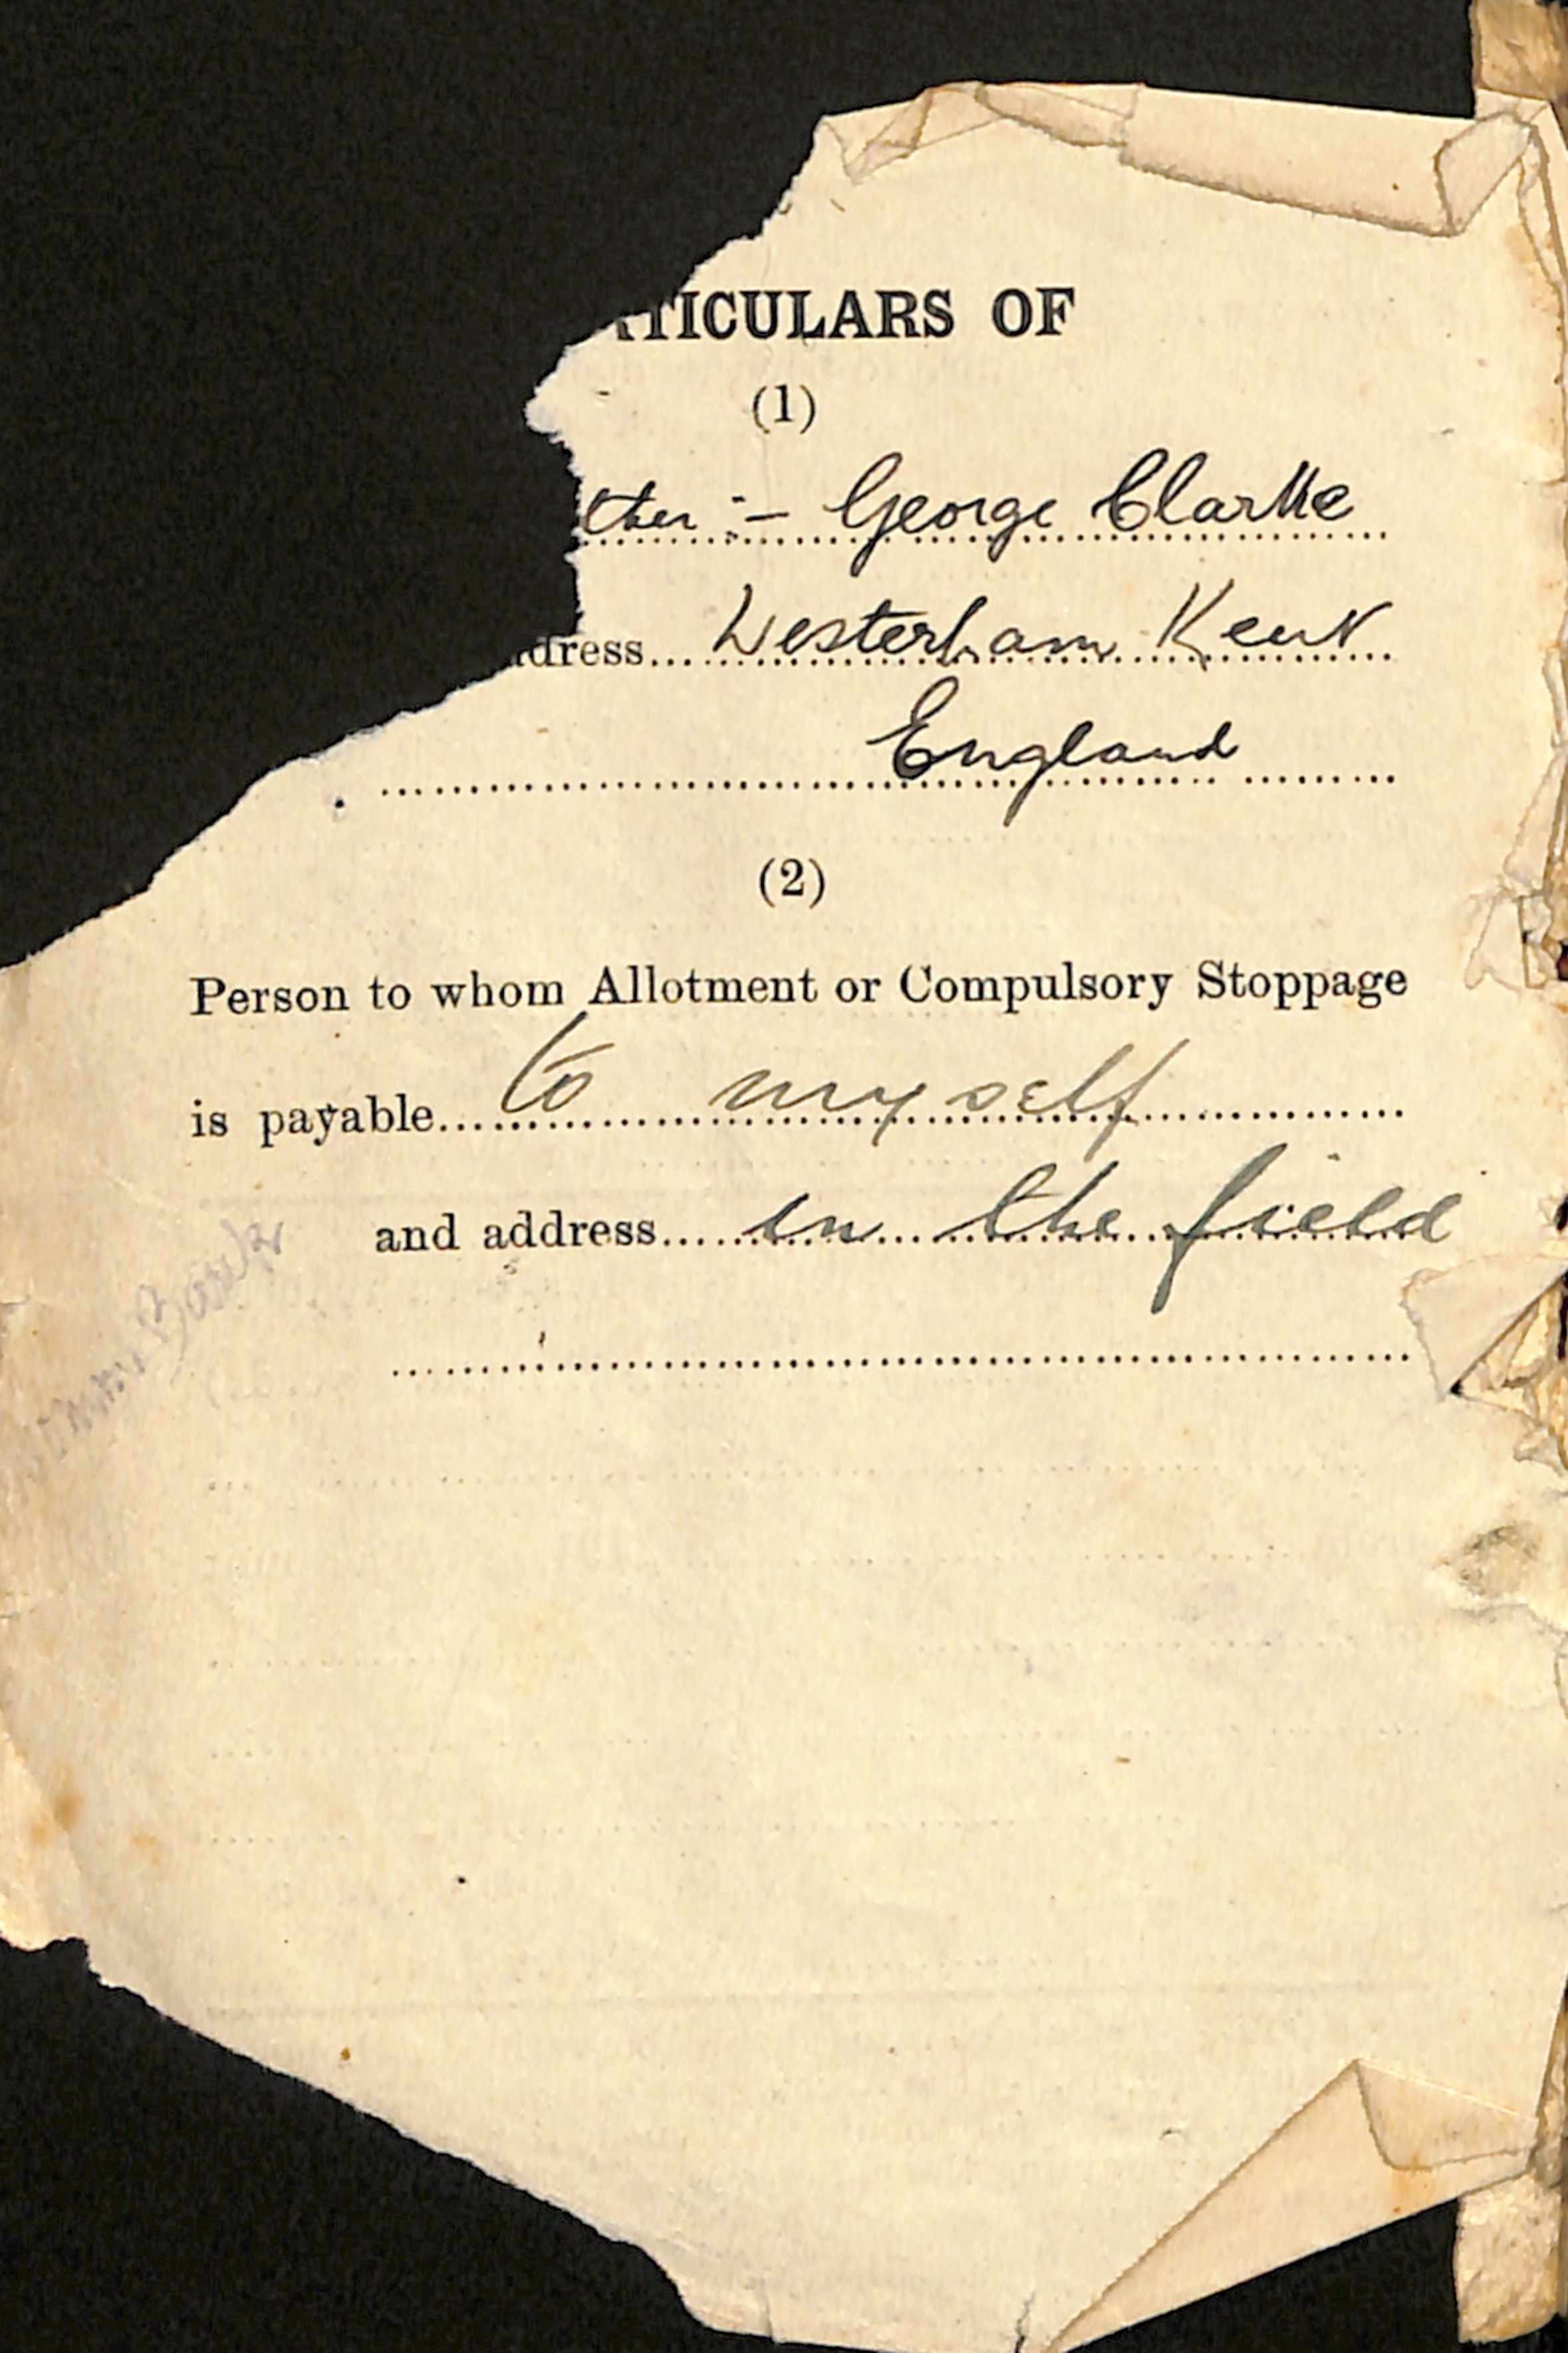 TICULARS OF
(1)
ther :- George Clarke
dress... Westerham Kent
England
(2)
Person to whom Allotment or Compulsory Stoppage
is payable... to myself
and address... in the field
Bank